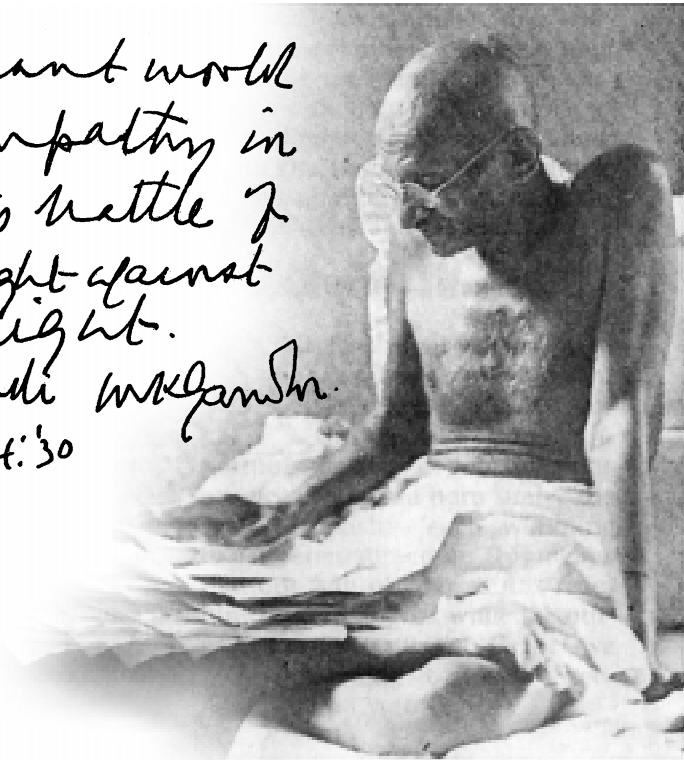 ant world
mpathy in
s battle of
ght against
ight.
di MKGandhi.
4:'30